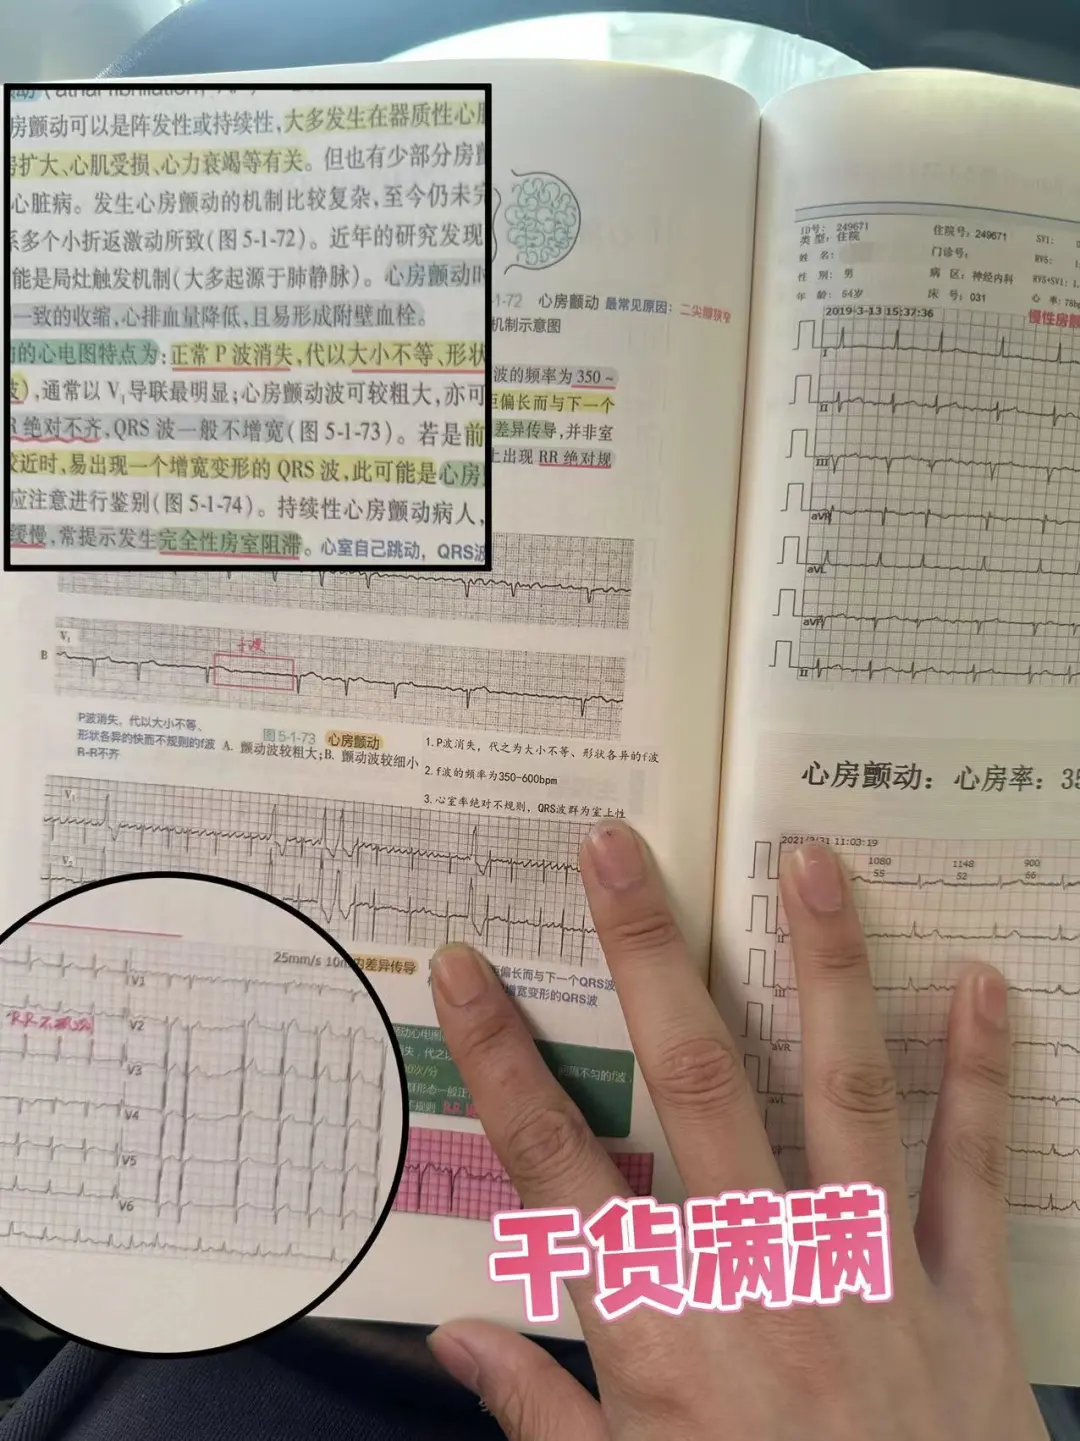 动(atrial fibrillation,
房颤动可以是阵发性或持续性,大多发生在器质性心
房扩大、心肌受损、心力衰竭等有关。但也有少部分房
心脏病。发生心房颤动的机制比较复杂,至今仍未完
系多个小折返激动所致(图 5-1-72)。近年的研究发现
能是局灶触发机制(大多起源于肺静脉)。心房颤动时
一致的收缩,心排血量降低,且易形成附壁血栓。
的心电图特点为:正常 P 波消失,代以大小不等、形状
波),通常以 V₁导联最明显;心房颤动波可较粗大,亦可
R 绝对不齐,QRS 波一般不增宽(图 5-1-73)。若是前
较近时,易出现一个增宽变形的 QRS 波,此可能是心房
应注意进行鉴别(图 5-1-74)。持续性心房颤动病人,
缓慢,常提示发生完全性房室阻滞。心室自己跳动,QRS波
-1-72 心房颤动 最常见原因:二尖瓣狭窄
机制示意图
波的频率为 350 ~
距偏长而与下一个
差异传导,并非室
上出现 RR 绝对规
V₁
B
f波
P波消失,代以大小不等、
形状各异的快而不规则的f波
R-R不齐
图 5-1-73 心房颤动
A. 颤动波较粗大;B. 颤动波较细小
1.P波消失,代之为大小不等、形状各异的f波
2.f波的频率为350-600bpm
3.心室率绝对不规则,QRS波群为室上性
V₁
V₂
内差异传导
距偏长而与下一个QRS波
增宽变形的QRS波
25mm/s 10m
V1
V2
V3
V4
V5
V6
颤动心电图
失,代之以
间隔不匀的f波,
00次/分
群形态一般正
不规则
ID号: 249671
类 型: 住院
姓 名:
性 别: 男
年 龄: 54岁
住院号: 249671
门诊号:
病 区: 神经内科
床 号: 031
SV1:
RV5:
RV5+SV1: 1.
心 率: 76bp
2019-3-13 15:37:36
慢性房颤
I
II
III
aVR
aVL
aVF
II
心房颤动: 心房率: 35
11:03:19
1080
55
1148
52
900
66
II
III
aVR
aVL
干货满满